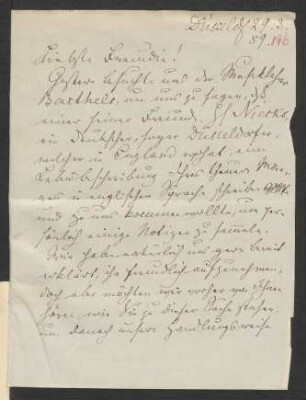 Düsseldf 29. 3.
89.
Liebste Freundin!
Gestern besuchte uns der Musiklehrer
Barthels, um uns zu sagen, daß
einer seiner Freunde, H. Niecks,
ein Deutscher, sogar Düsseldorfer,
welcher in England wohnt, eine
Lebensbeschreibung Ihres theuern Man-
nes in englischer Sprache schreiben
und zu uns kommen wollte, um per-
sönlich einige Notizen zu sammeln.
Wir haben natürlich uns gern bereit
erklärt, ihn freundlich aufzunehmen,
doch aber möchten wir vorher von Ihnen
hören, wie Sie zu dieser Sache stehen,
um danach unsere Handlungsweise